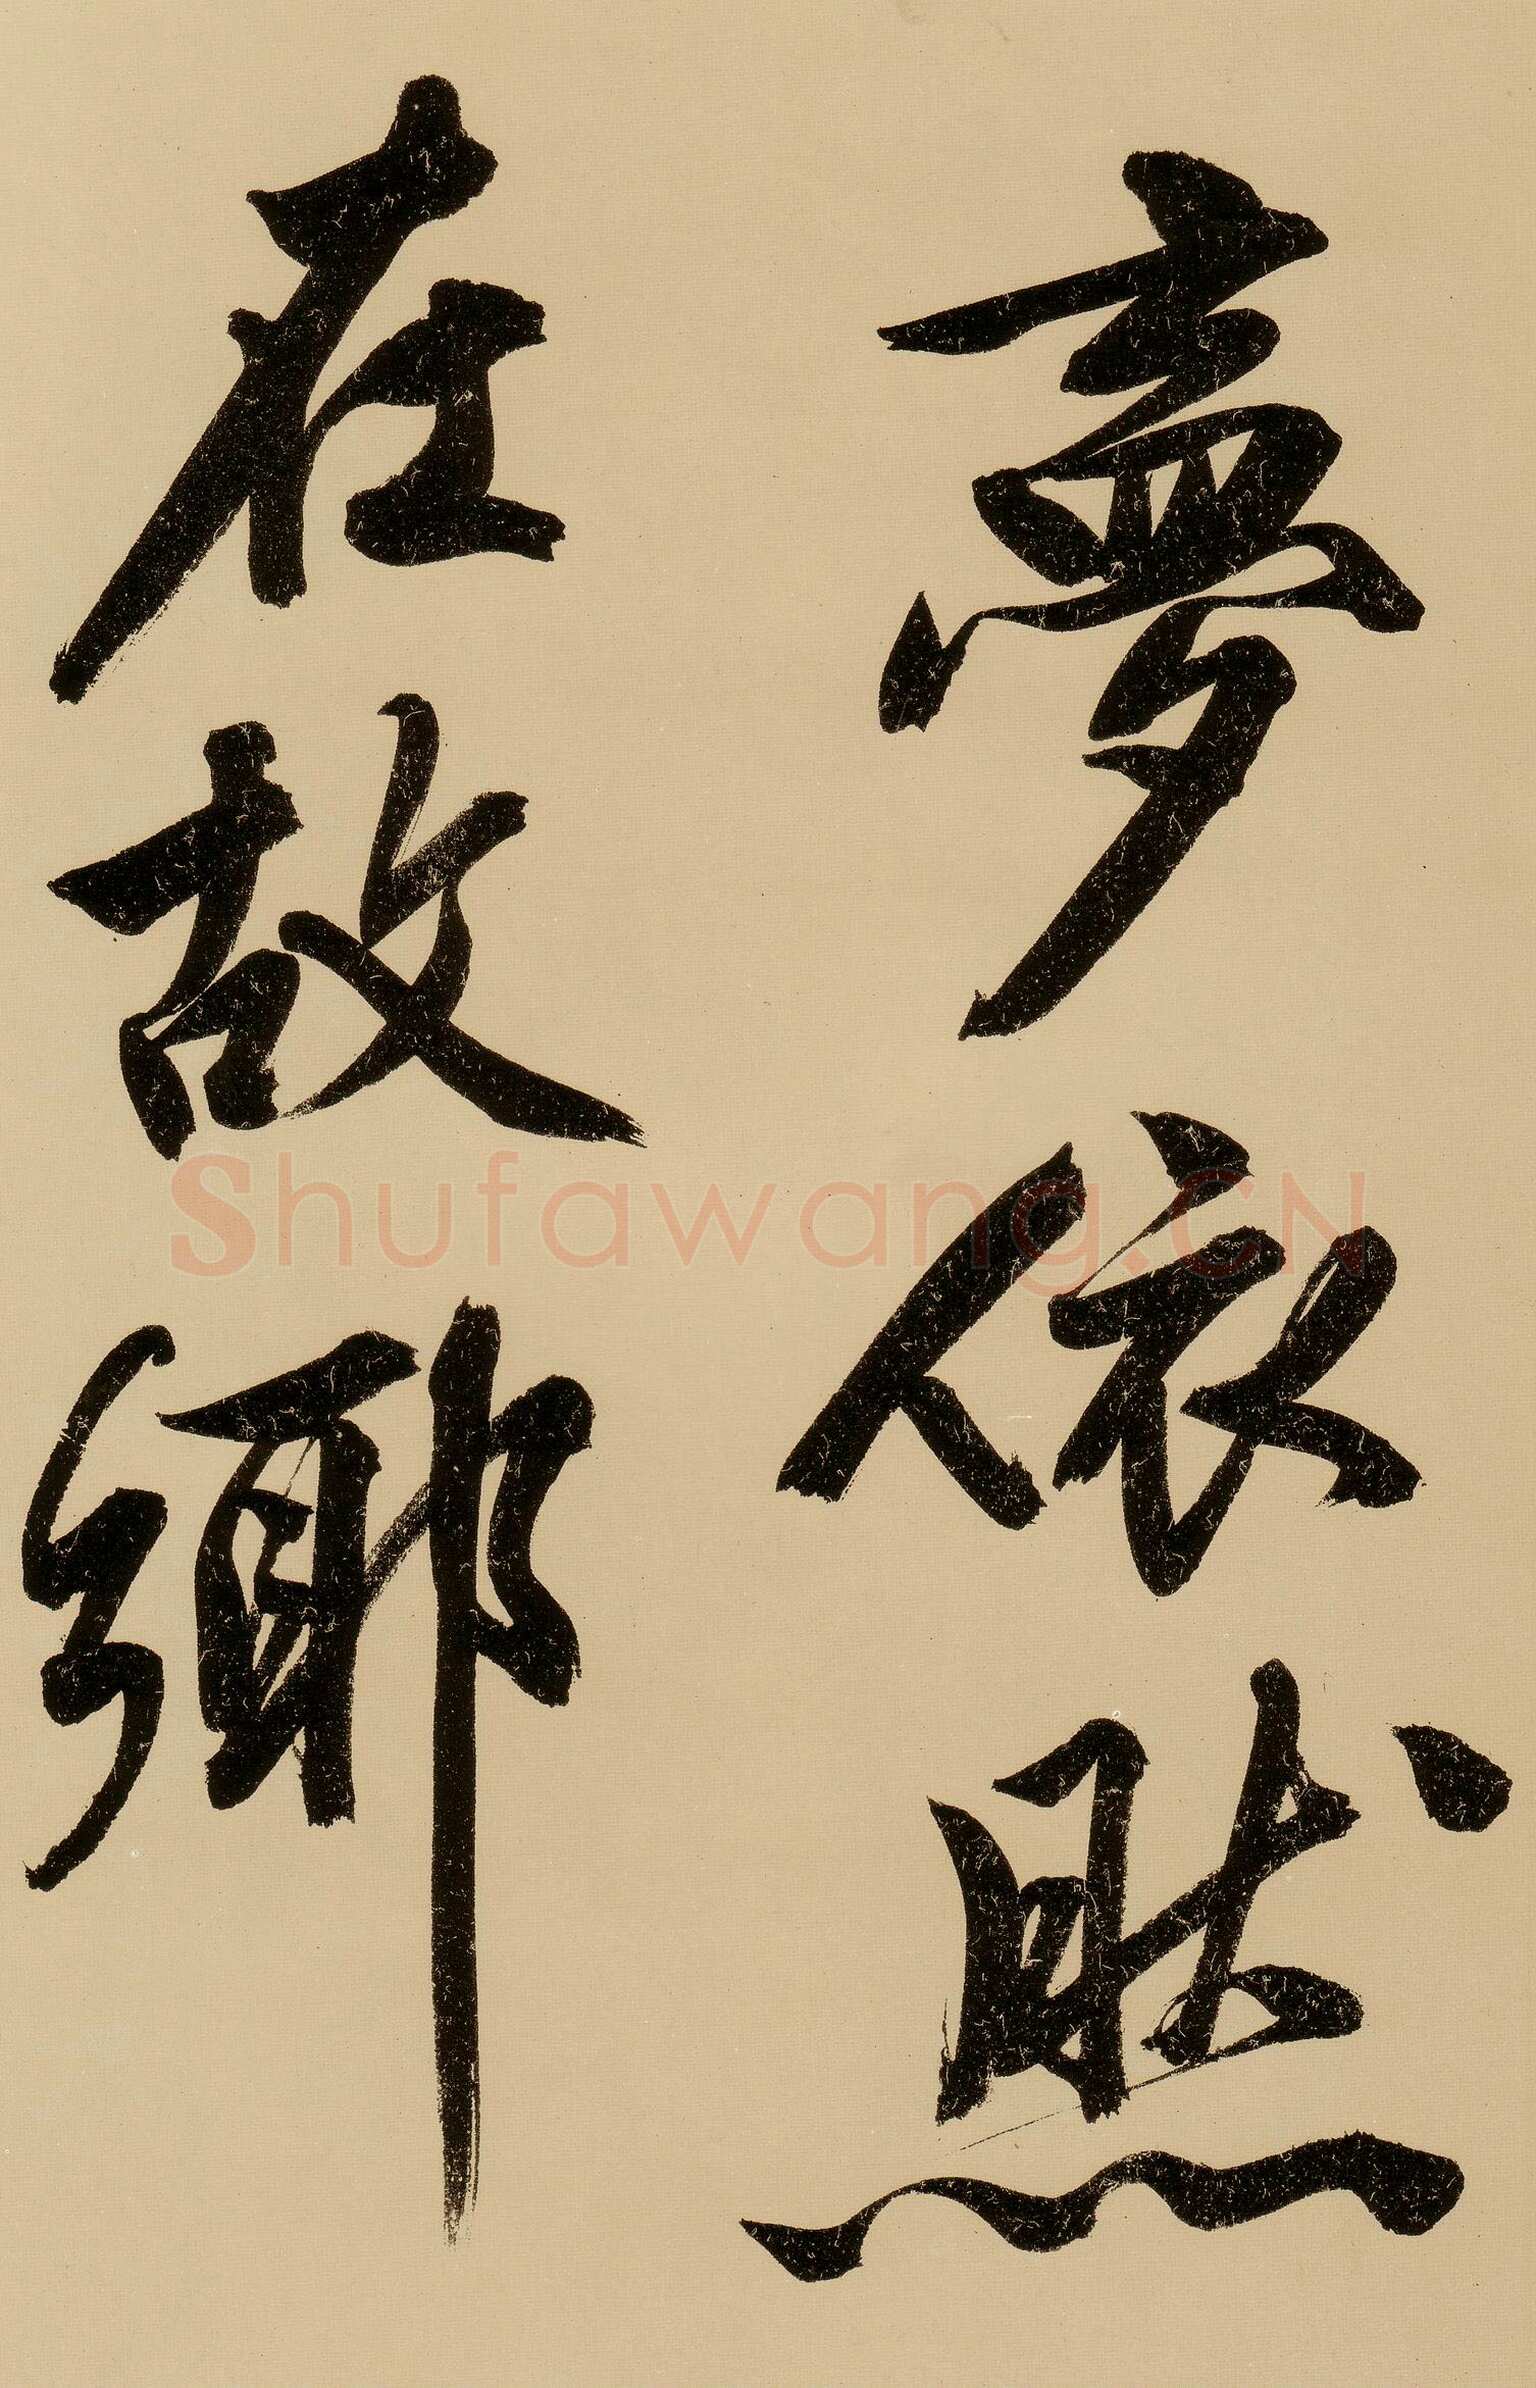 夢依然
在故鄉
Shufawang.CN